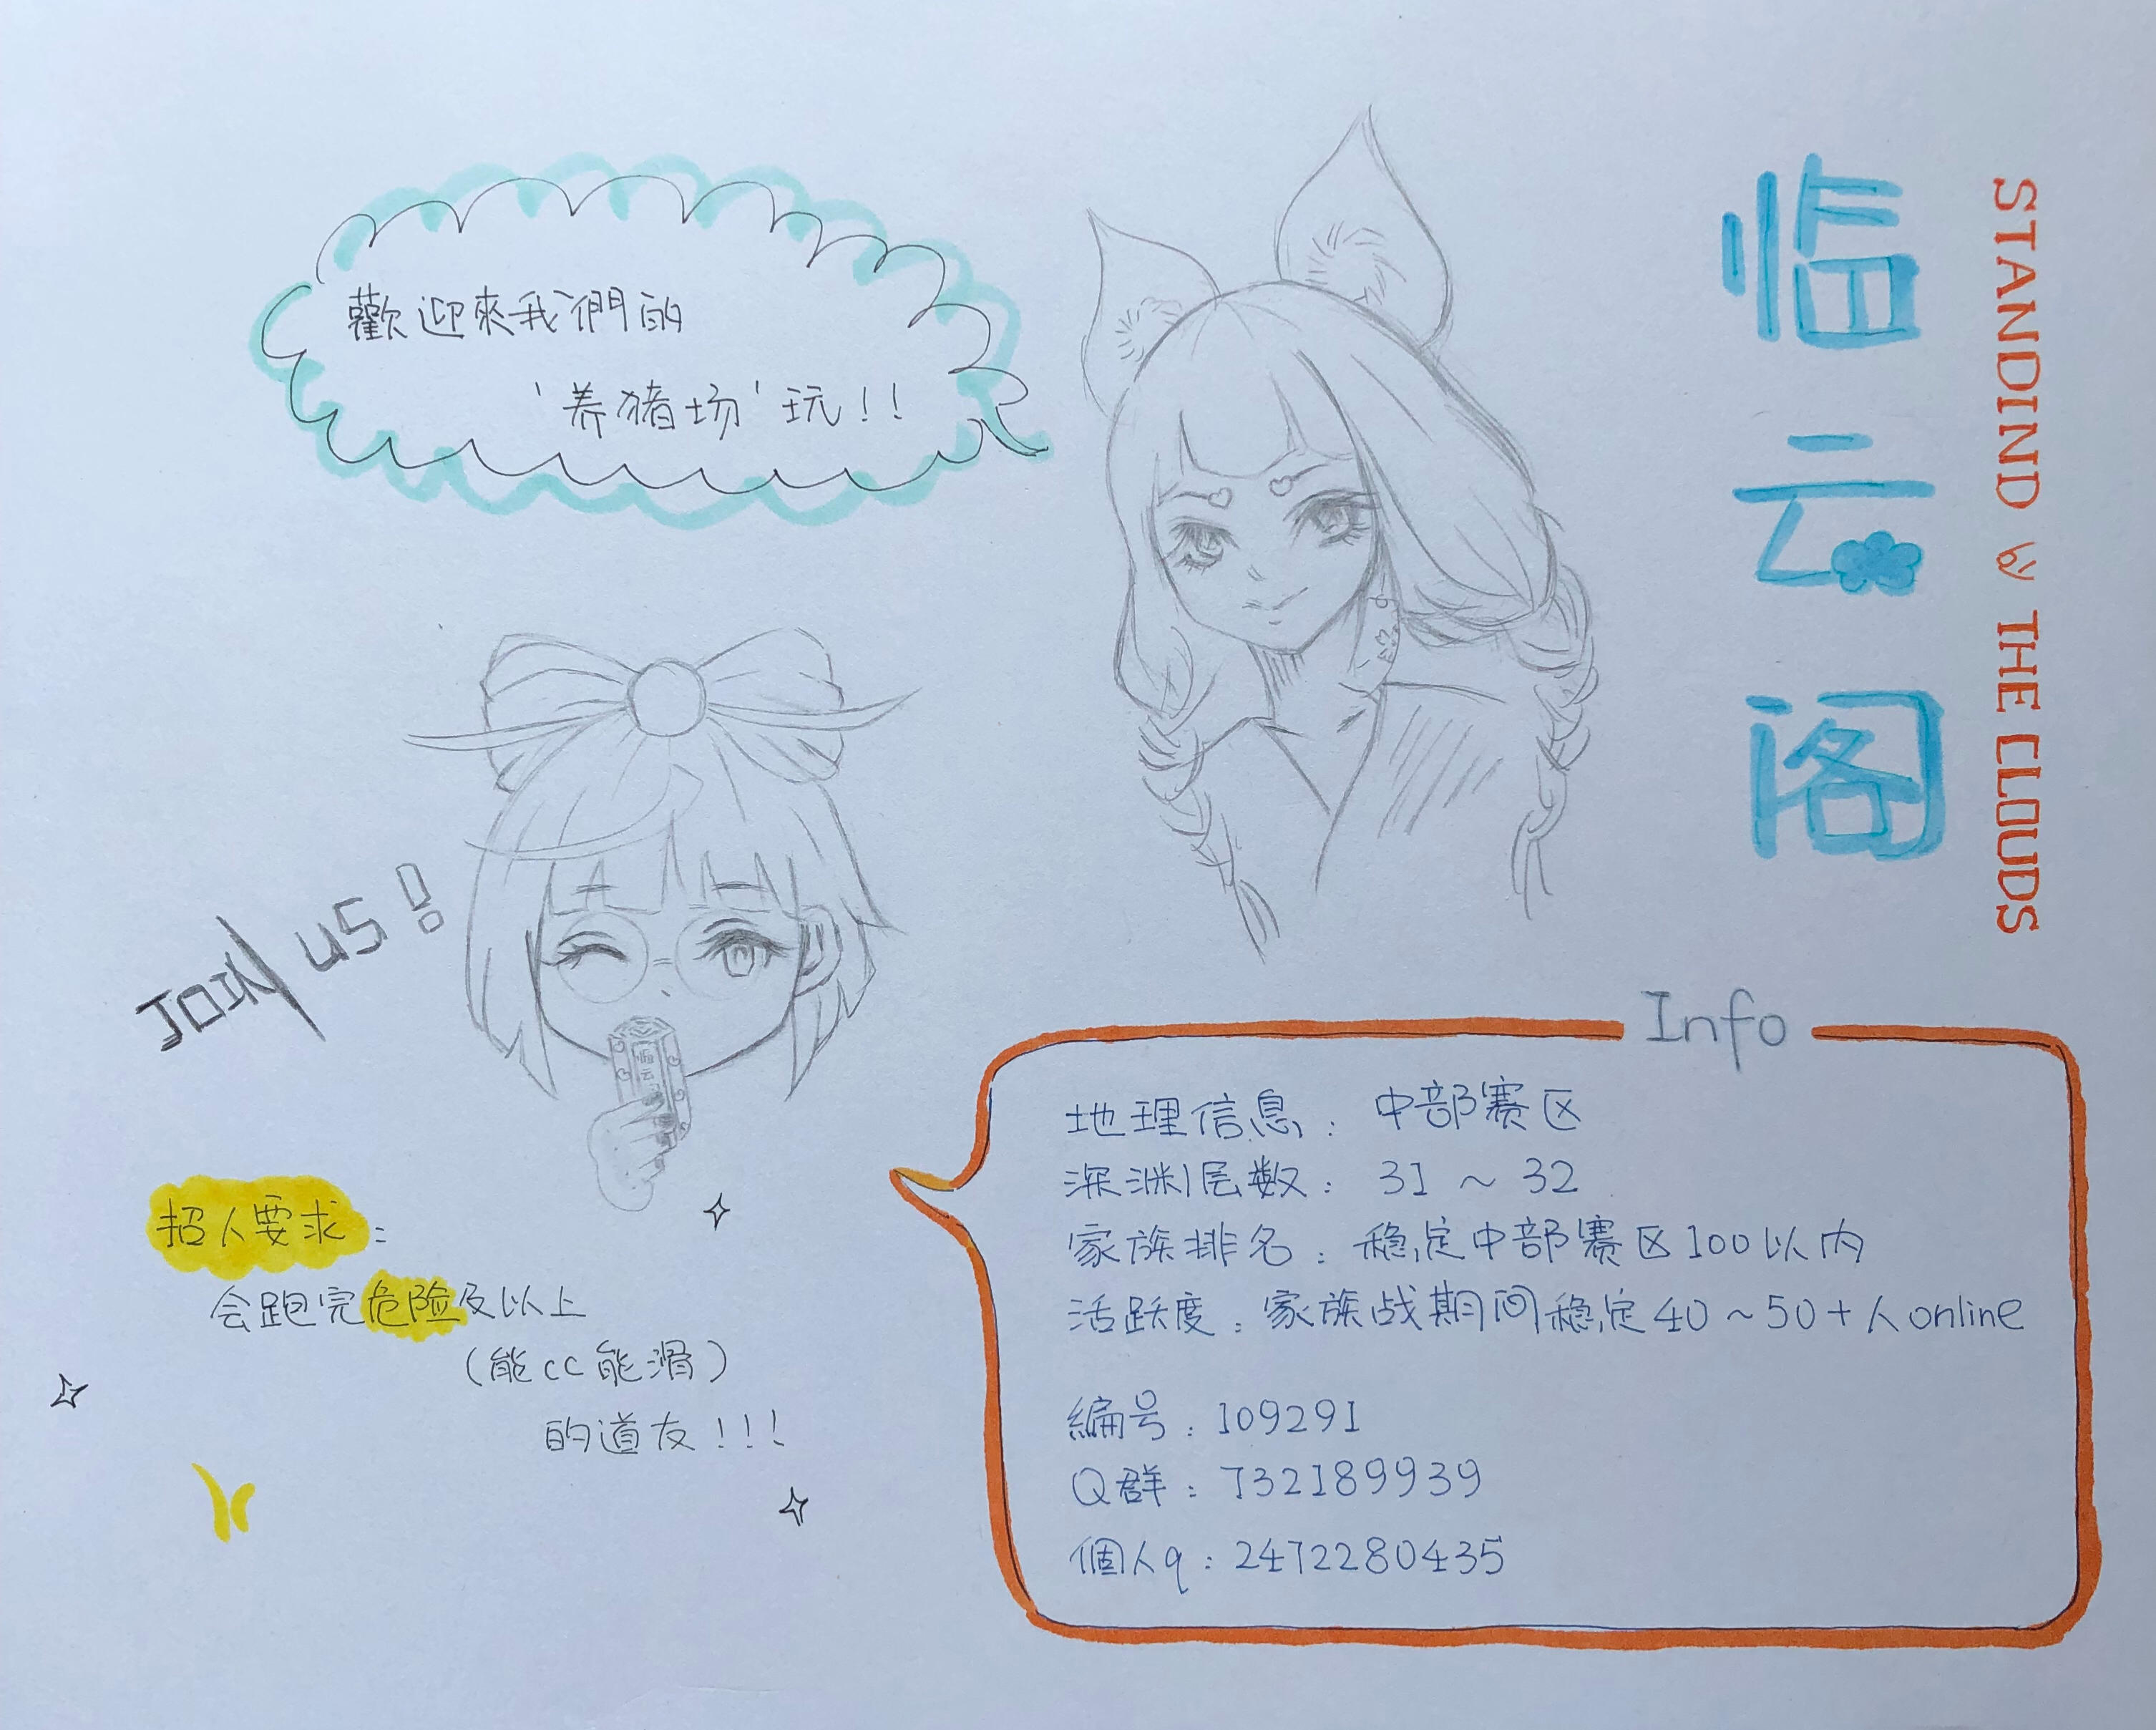 歡迎來我們的
'养猪场'玩!!
临云阁
STANDIND THE CLOUDS
JOIN us!
临云
招人要求:
会跑完危险及以上
(能cc能滑)
的道友!!!
Info
地理信息: 中部赛区
深渊层数: 31 ~ 32
家族排名: 稳定中部赛区100以内
活跃度: 家族战期间稳定40~50+人online
編号: 109291
Q群: 732189939
個人q: 2472280435